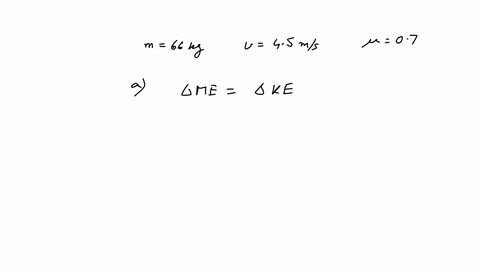 m = 66 kg v = 4.5 m/s μ = 0.7
a) ΔME = ΔKE